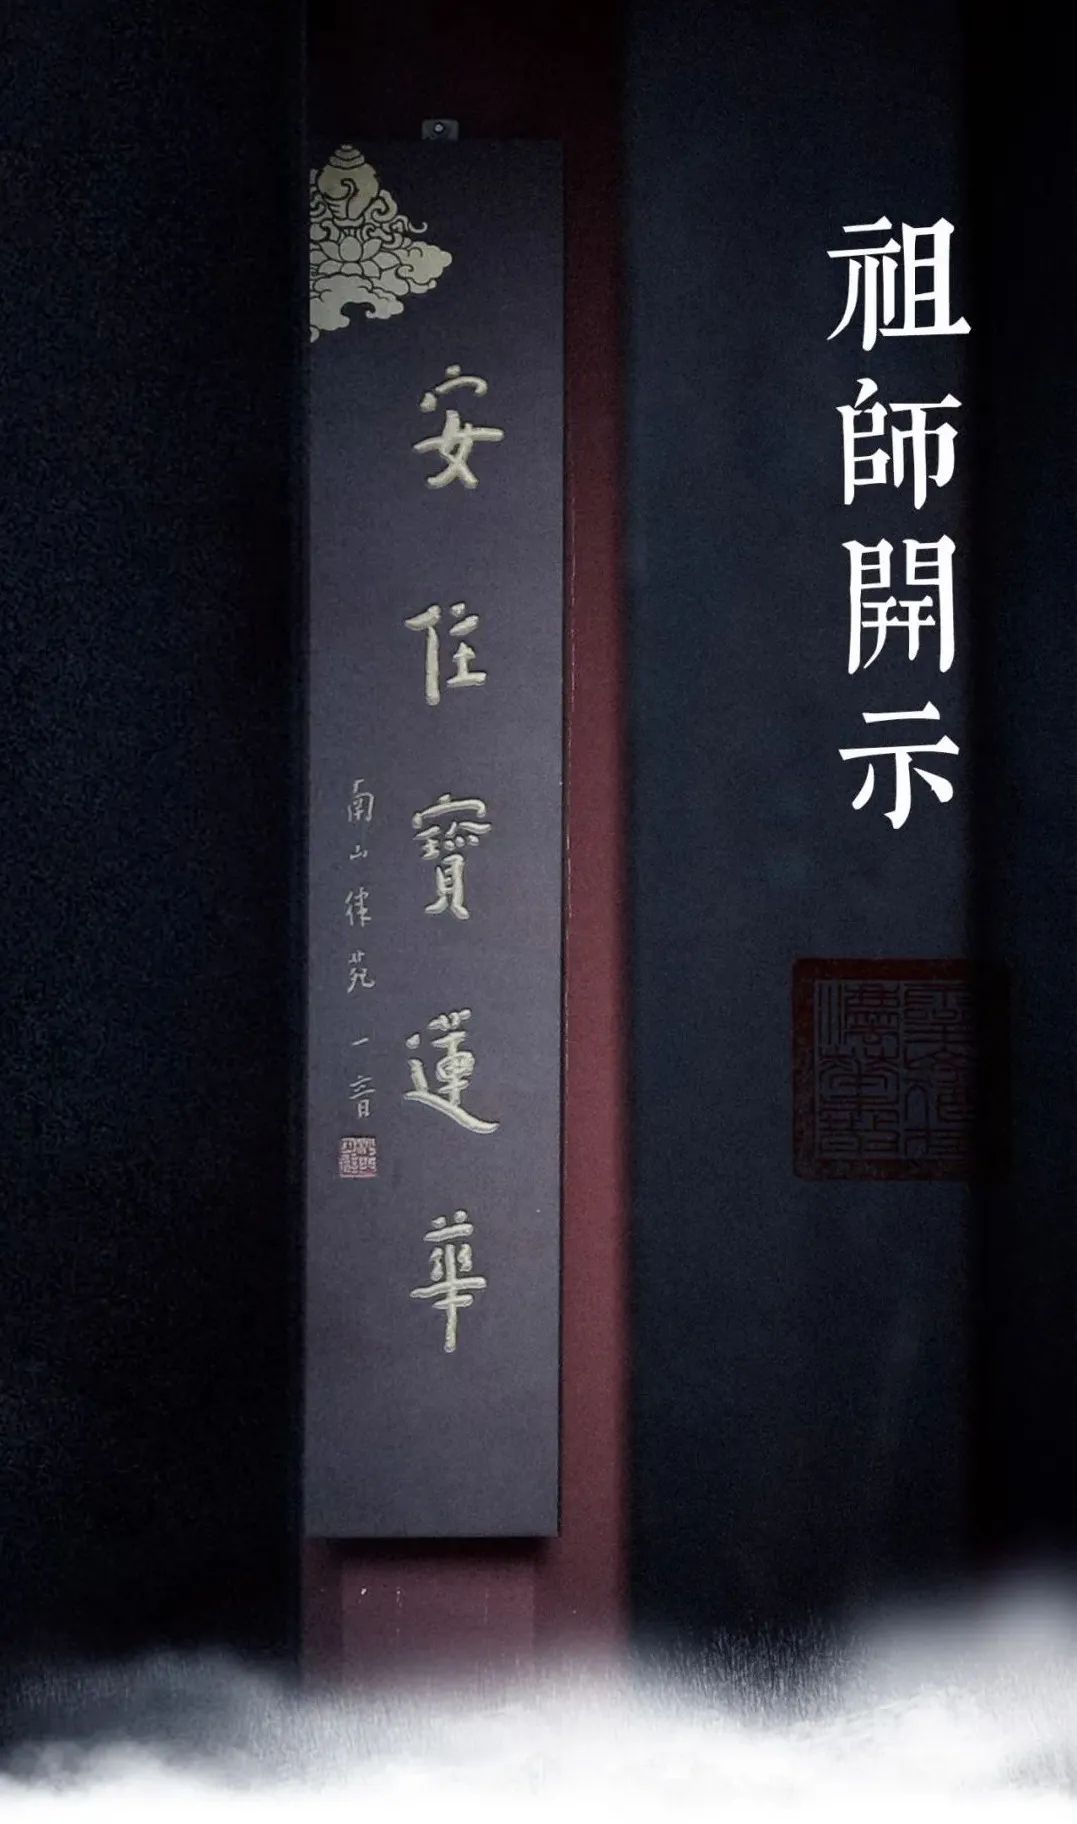 祖師開示
安住寶蓮華
南山律苑一音